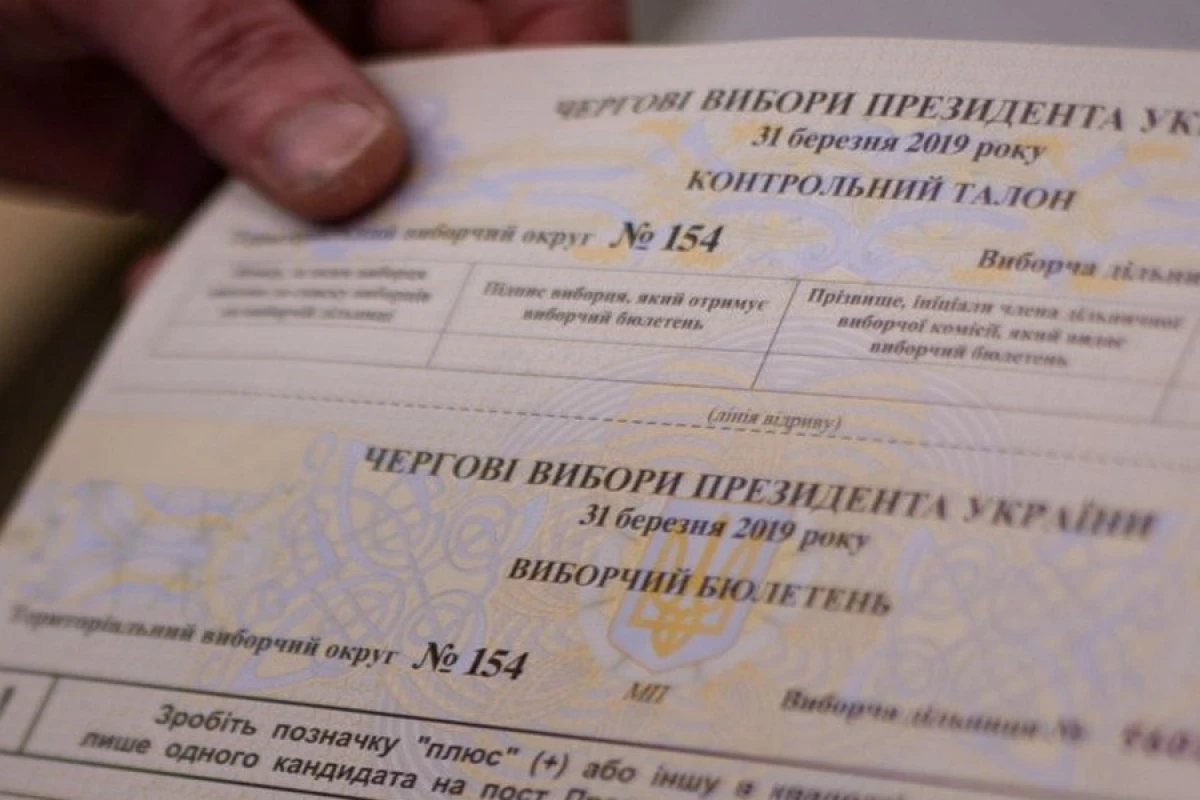 ЧЕРГОВІ ВИБОРИ ПРЕЗИДЕНТА УК
31 березня 2019 року
КОНТРОЛЬНИЙ ТАЛОН
виборчий округ № 154
Виборча дільни
Підпис виборця, який отримує
виборчий бюлетень
Прізвище, ініціали члена дільничної
виборчої комісії, який видає
виборчий бюлетень
(лінія відриву)
ЧЕРГОВІ ВИБОРИ ПРЕЗИДЕНТА УКРАЇНИ
31 березня 2019 року
ВИБОРЧИЙ БЮЛЕТЕНЬ
Територіальний виборчий округ № 154
МП
Виборча дільниця №
Зробіть позначку "плюс" (+) або іншу в
лише одного кандидата на пост